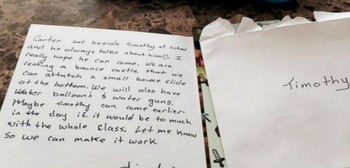 Carter sat beside Timothy at school
and he always talks about him!! I
really hope he can come. We are
renting a bounce castle that we
can attatch a small bounce slide
at the bottom. We will also have
Water balloon's & water guns.
Maybe Timothy can come earlier
in the day if it would be to much
with the whole class. Let me know
So we can make it work
Timothy